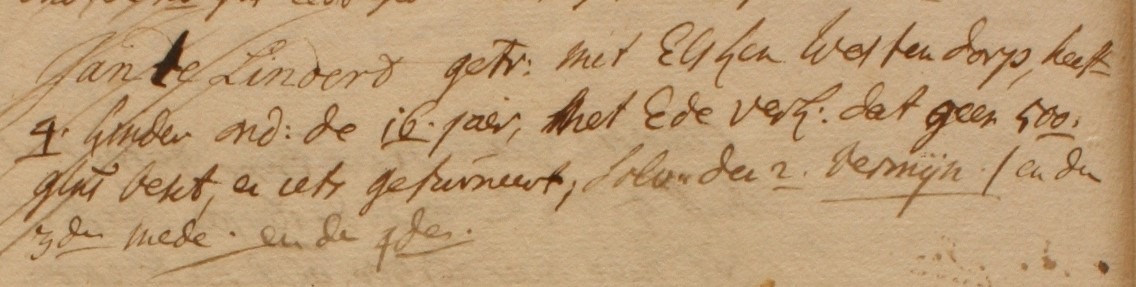 Jan te Lindert getr: mit Elsken Westendorp, heeft
4. kinder ond: de 16. jaer, Met Ede verk: dat geen 500.
glns besit, en iets gefurneert, Solv: den 2. termijn / en den
3den mede. en de 4den.